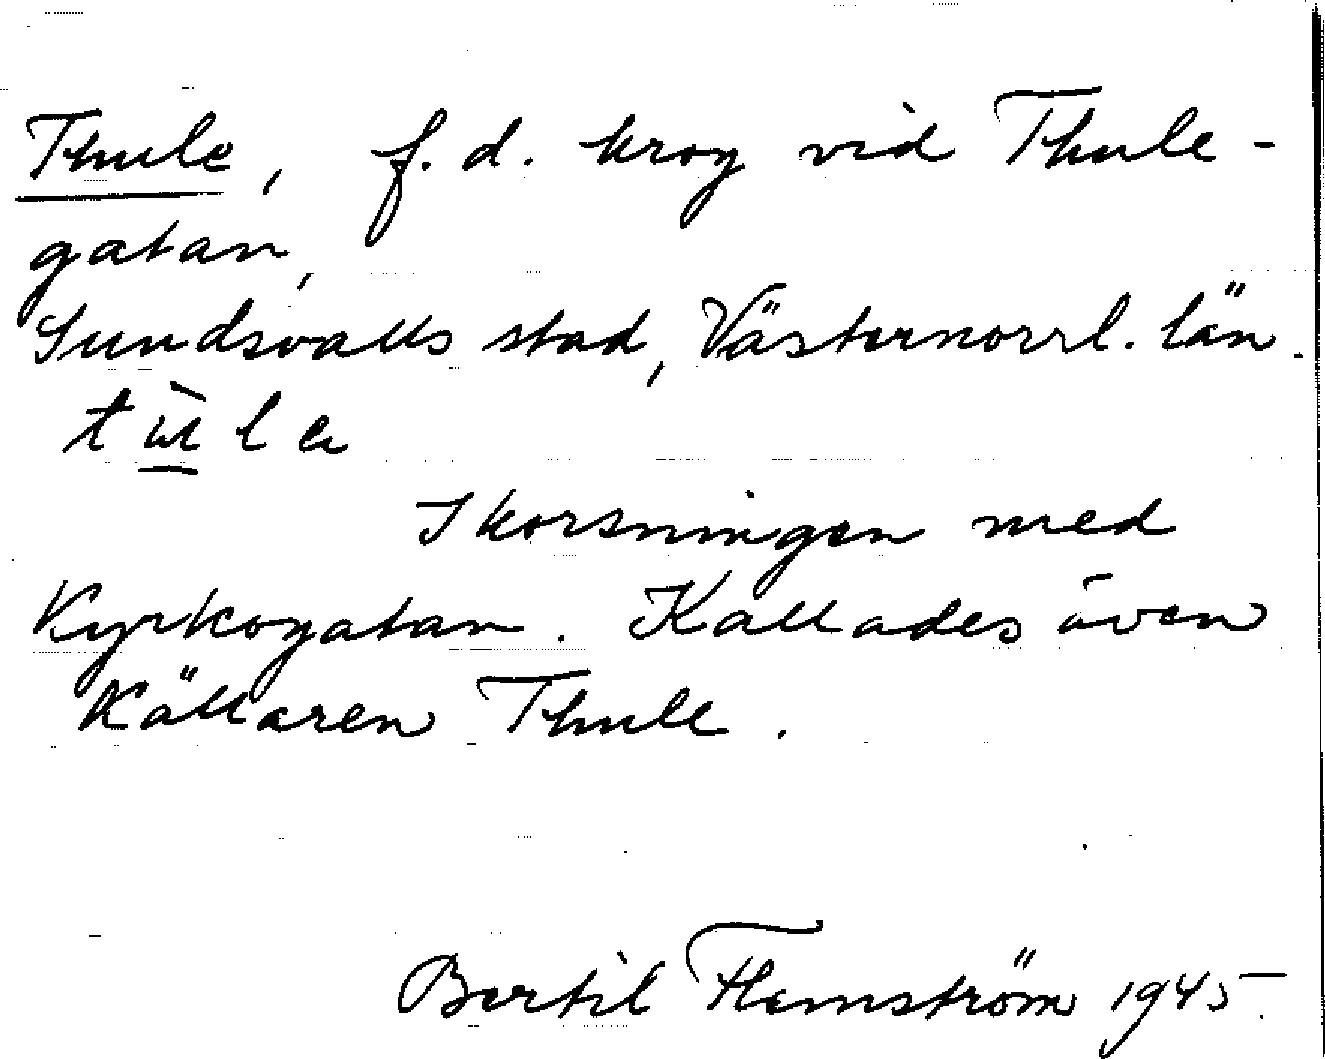 Thule, f.d. krog vid Thule-
gatan,
Sundsvalls stad, Västernorrl. län.
Ikorsningen med
Kyrkogatan. Kallades även
Källaren Thule.
Bertil Flemström 1945.